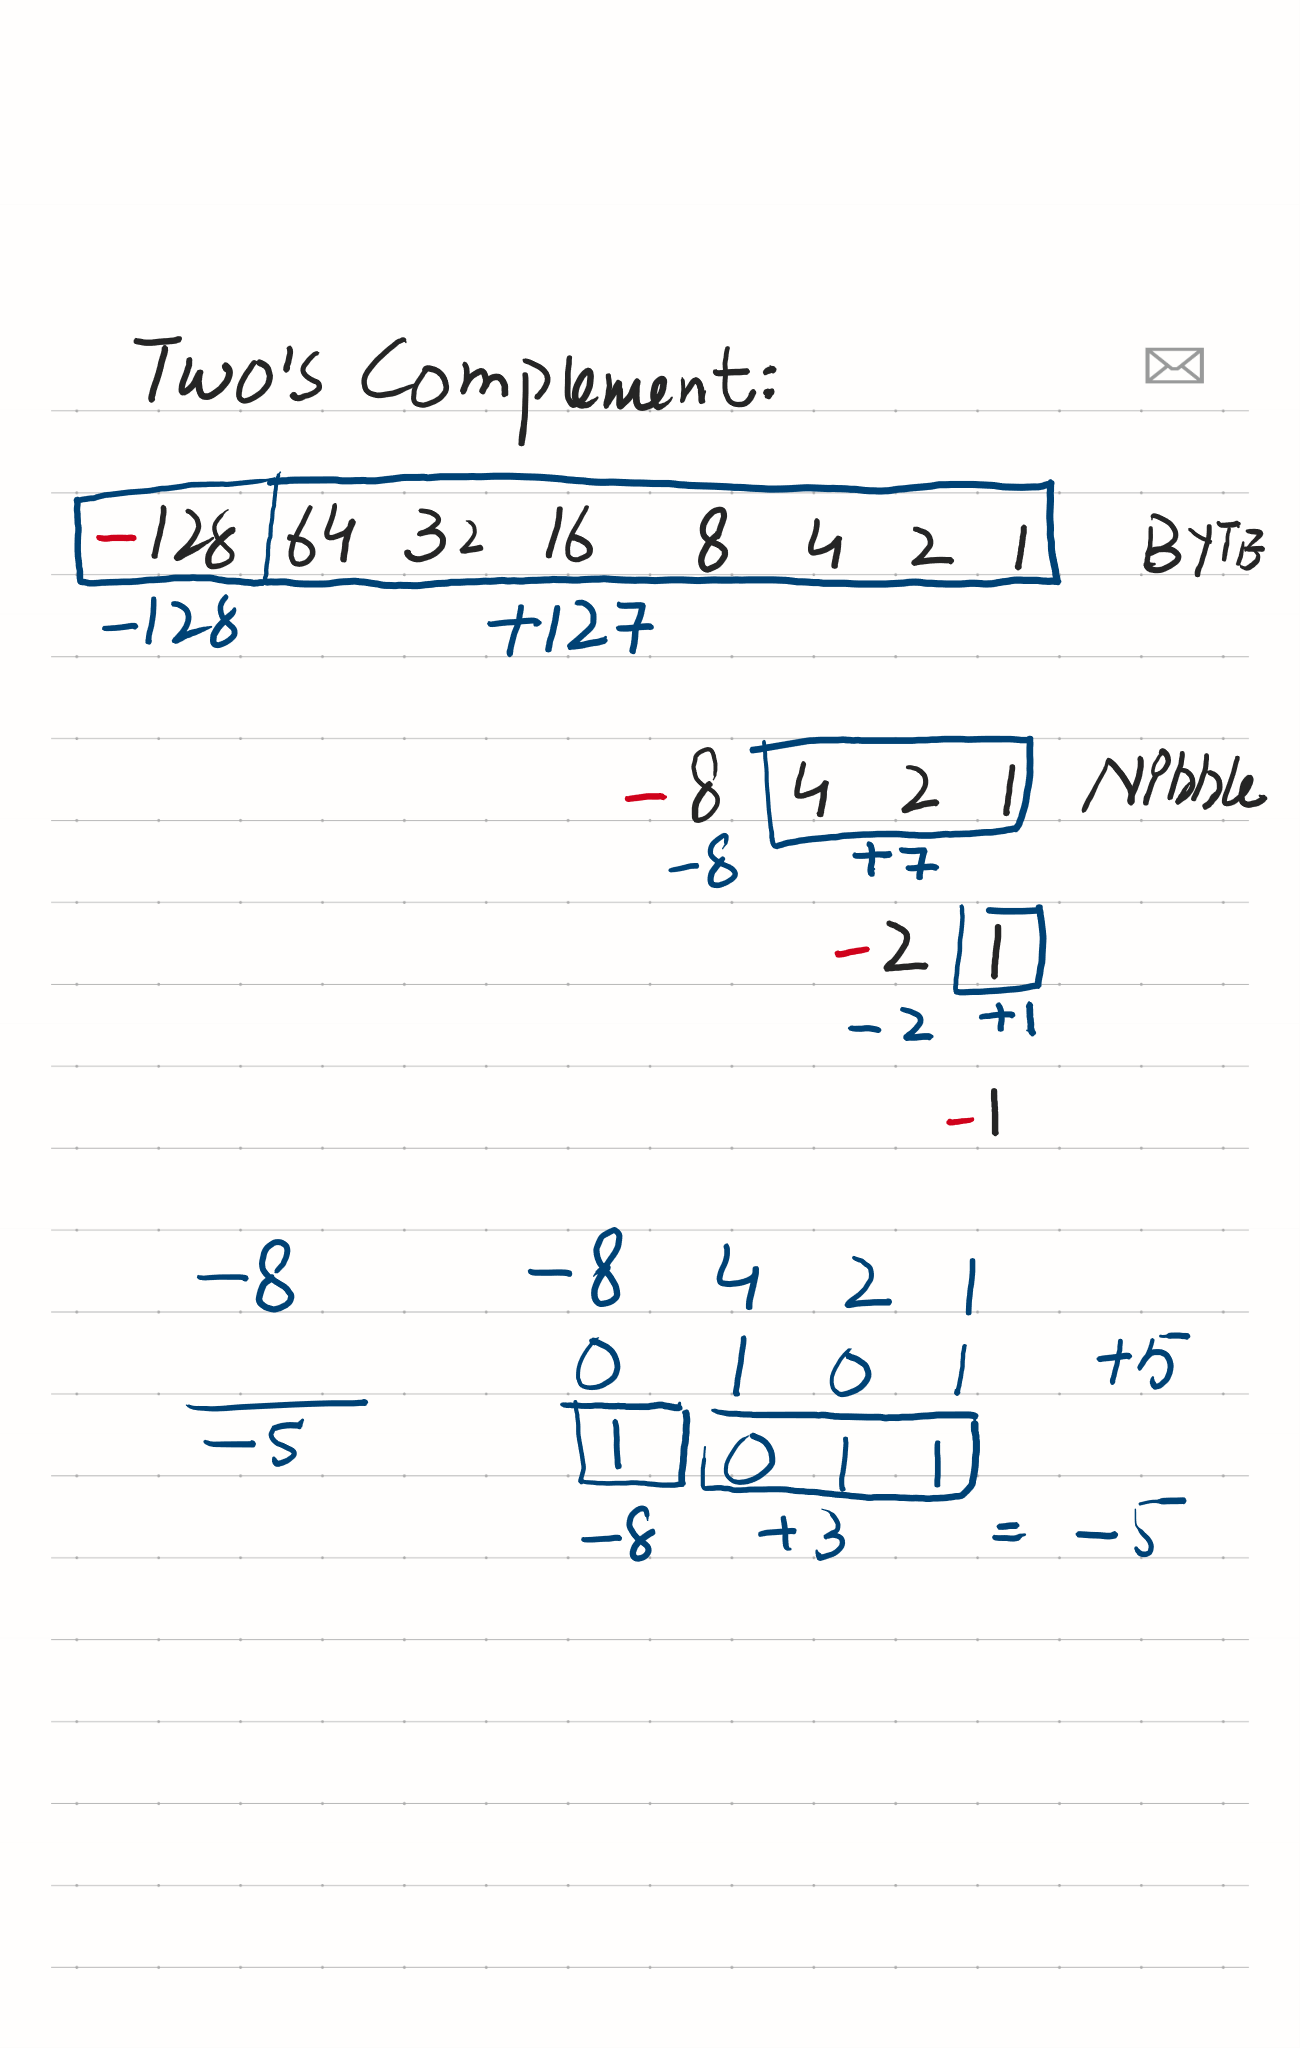 Two's Complement:
-128 64 32 16 8 4 2 1 BYTE
-128 +127
-8 4 2 1 Nibble
-8 +7
-2 1
-2 +1
-1
-8 -8 4 2 1
0 1 0 1 +5
-5 1 0 1 1
-8 +3 = -5